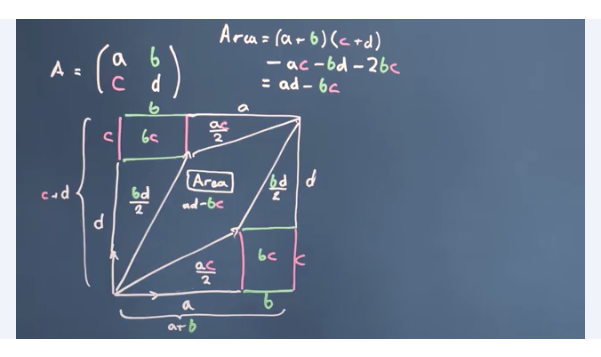 A = (a b
c d)
Area = (a+b)(c+d)
- ac - bd - 2bc
= ad - bc
b a
c bc ac/2
c+d
bd/2 Area bd/2 d
ad-bc
d
ac/2 bc c
a b
a+b